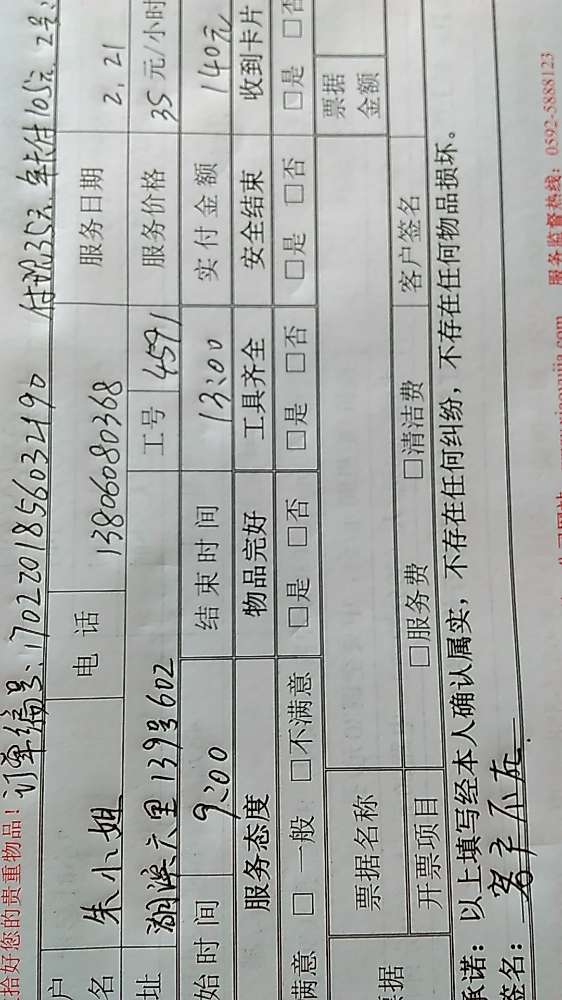 拾好您的贵重物品! 订单编号:1702201856032490 付现35元、年卡付105元 2号:
户名 朱小姐 电话 13806080368 服务日期 2.21
址 湖滨六里139号602 工号 4591 服务价格 35元/小时
始时间 9:00 结束时间 13:00 实付金额 140元
服务态度 物品完好 工具齐全 安全结束 收到卡片
满意 □ 一般 □不满意 □是 □否 □是 □否 □是 □否 □是 □否
票据名称 票据金额
据 开票项目 □服务费 □清洁费 客户签名
承诺:以上填写经本人确认属实,不存在任何纠纷,不存在任何物品损坏。
签名: 客户不在.
服务监督热线:0592-5888123